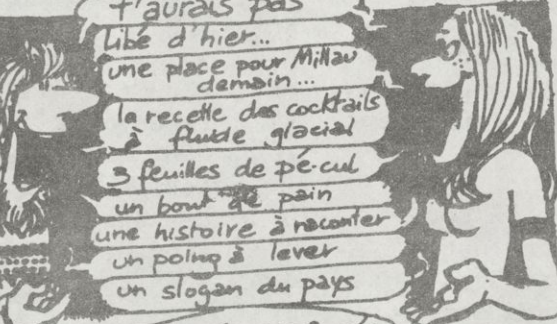 t'aurais pas
Libé d'hier...
une place pour Millau
demain...
la recette des cocktails
à fluide glacial
3 feuilles de pé-cul
un bout de pain
une histoire à raconter
un poing à lever
un slogan du pays